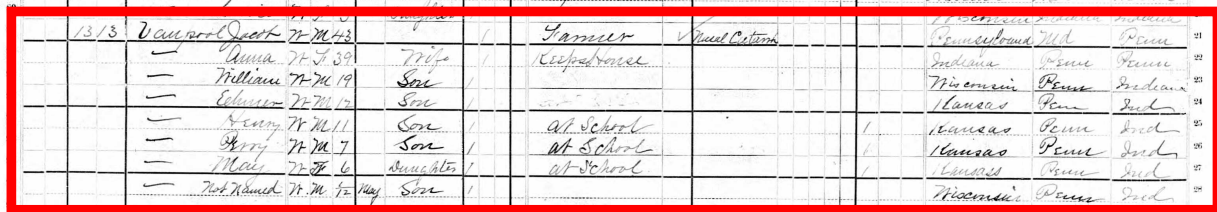 Daughter Wisconsin Indiana Indiana
13 13 Vanpool Jacob W M 43 1 Farmer ✓ Pennsylvania Md Penn 21
— Anna W F 39 Wife 1 Keeps House Indiana Penn Penn 22
— William W M 19 Son 1 Wisconsin Penn Indiana 23
— W M 12 Son 1 Kansas Penn Ind 24
— Henry W M 11 Son 1 at School 1 Kansas Penn Ind 25
— Perry W M 7 Son 1 at School 1 Kansas Penn Ind 26
— May W F 6 Daughter 1 at School 1 Kansas Penn Ind 27
— Not Named W M 1/12 May Son 1 Wisconsin Penn Ind 28